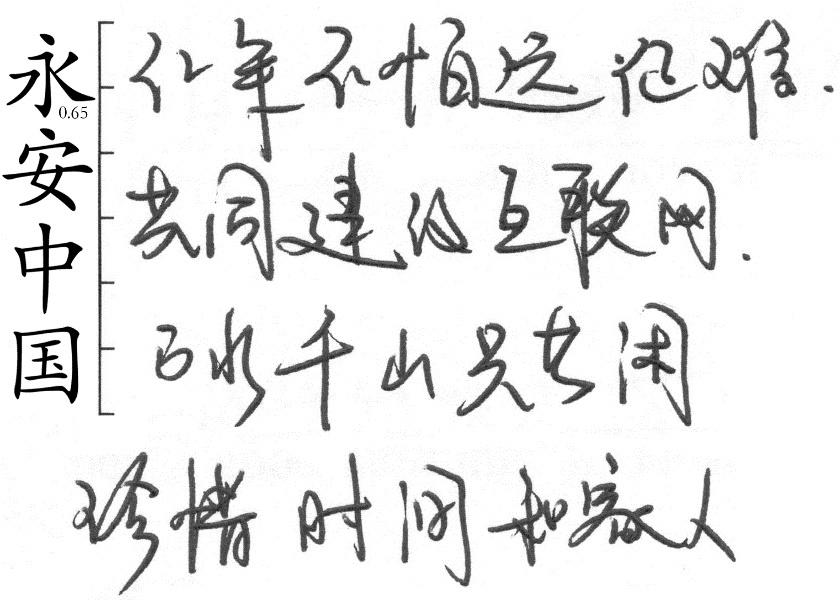 永安中国
0.65
红军不怕远征难.
共同建设互联网.
万水千山只等闲
珍惜时间和家人